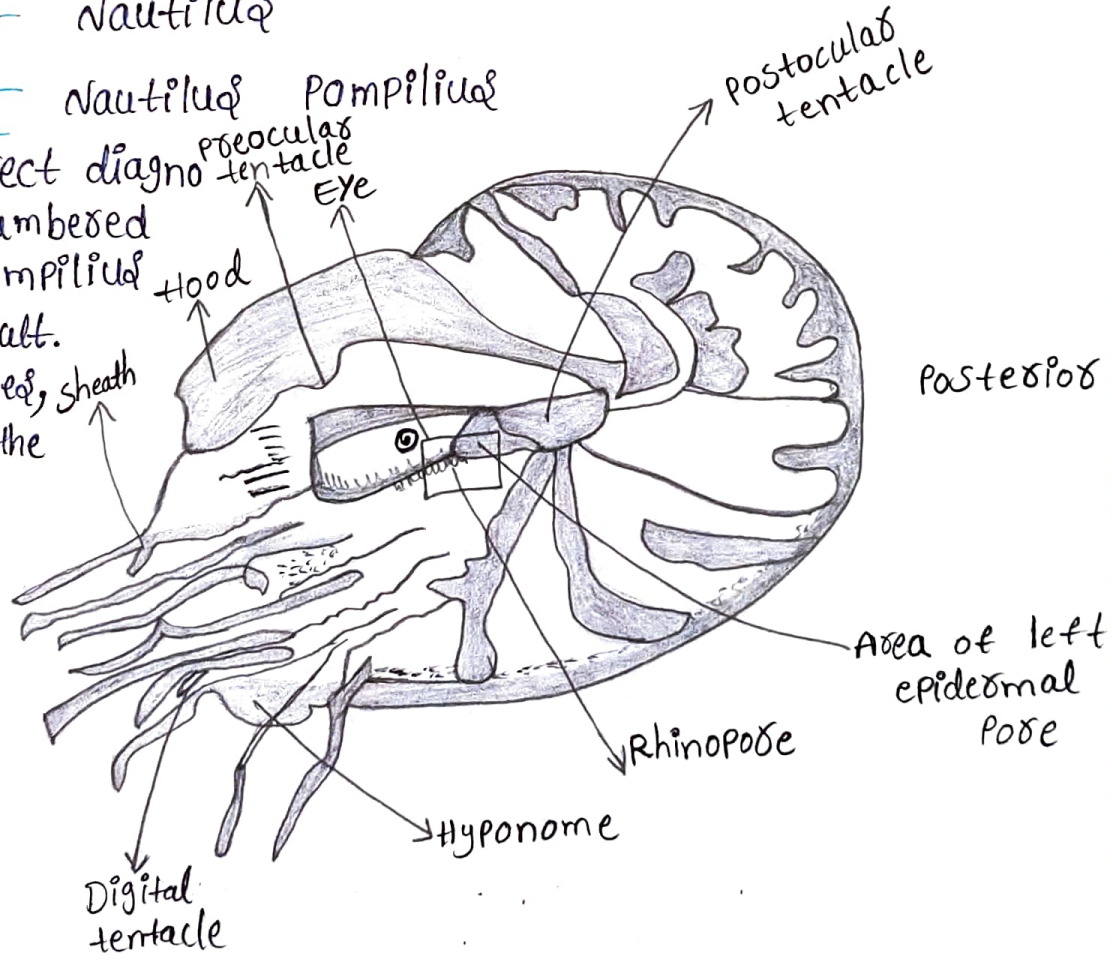 Nautilus
Nautilus Pompilius
ect diagno
umbered
mpilius
alt.
es,
the
preocular
tentacle
Eye
Hood
sheath
postocular
tentacle
Posterior
Area of left
epidermal
Pore
Rhinopore
Hyponome
Digital
tentacle